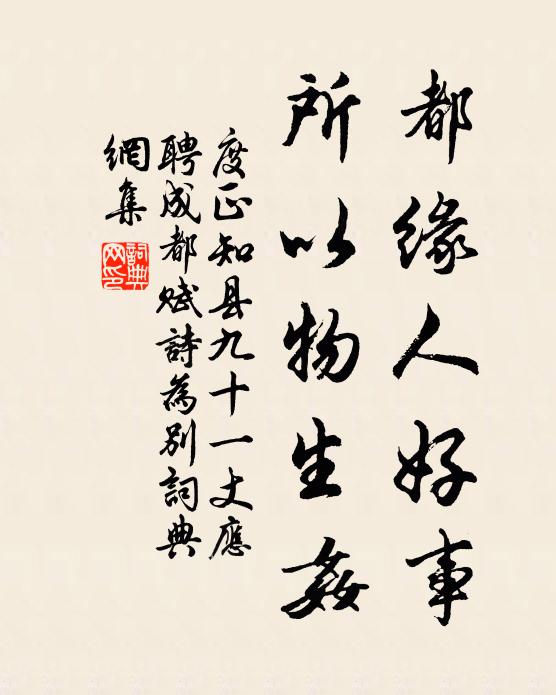 都缘人好事
所以物生姦
度正知县九十一丈應
聘成都赋詩為别詞典
網集
詞典
网印